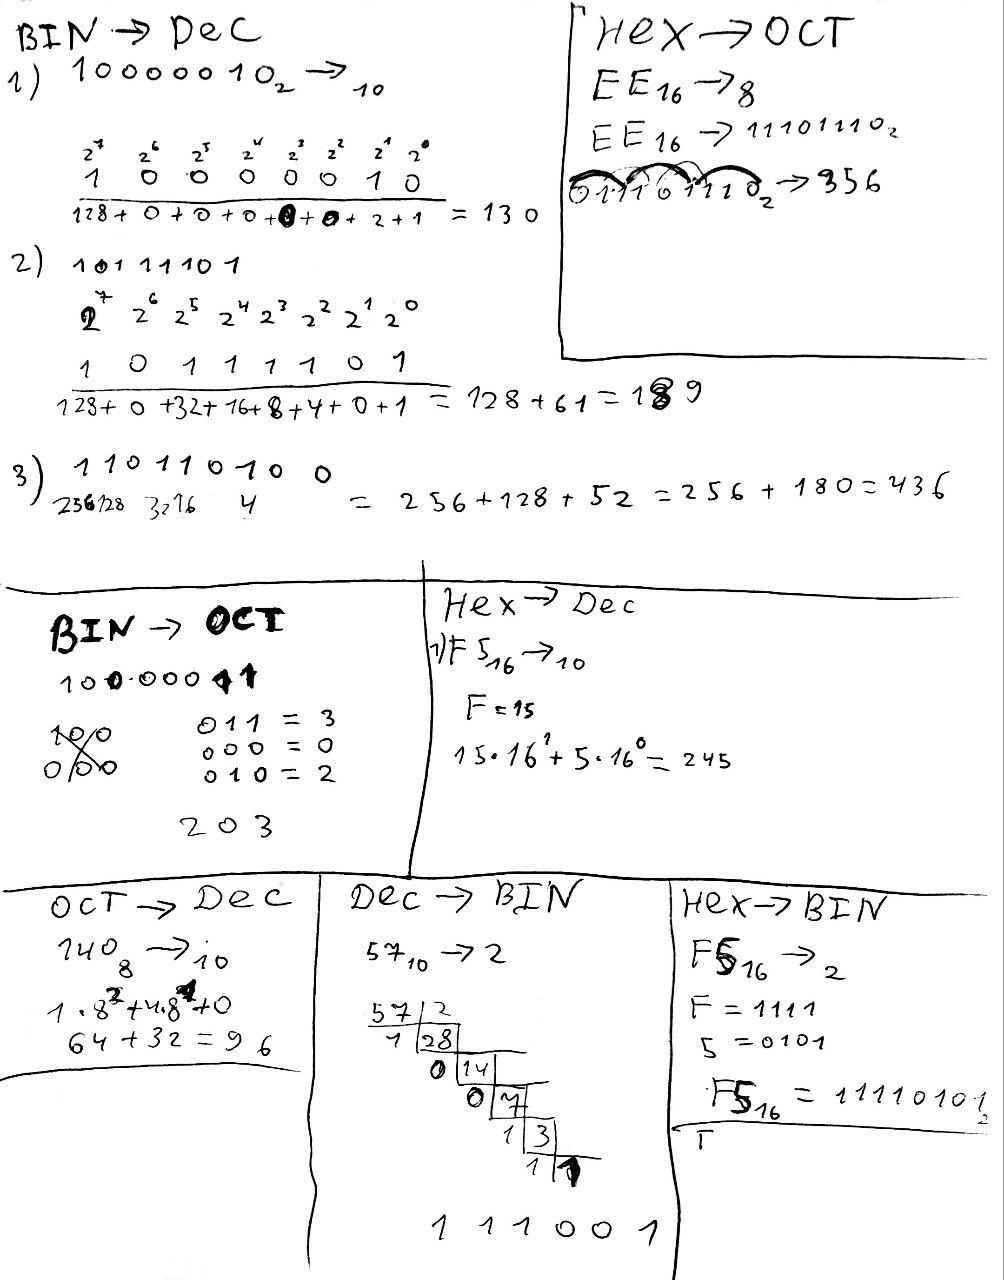 BIN → DeC
1) 10000010₂ → ₁₀
2⁷ 2⁶ 2⁵ 2⁴ 2³ 2² 2¹ 2⁰
1 0 0 0 0 0 1 0
128 + 0 + 0 + 0 + 0 + 0 + 2 + 1 = 130
2) 10111101
2⁷ 2⁶ 2⁵ 2⁴ 2³ 2² 2¹ 2⁰
1 0 1 1 1 1 0 1
128 + 0 + 32 + 16 + 8 + 4 + 0 + 1 = 128 + 61 = 189
3) 110110100
256 128 32 16 4 = 256 + 128 + 52 = 256 + 180 = 436
Hex → OCT
EE₁₆ → 8
EE₁₆ → 11101110₂
011101110₂ → 356
BIN → OCT
100·00011
100
000
011 = 3
000 = 0
010 = 2
203
Hex → Dec
1) F5₁₆ → ₁₀
F = 15
15·16¹ + 5·16⁰ = 245
OCT → DeC
140₈ → ₁₀
1·8² + 4·8¹ + 0
64 + 32 = 96
Dec → BIN
57₁₀ → 2
57 2
1 28
0 14
0 7
1 3
1 1
111001
Hex → BIN
F5₁₆ → ₂
F = 1111
5 = 0101
F5₁₆ = 11110101₂